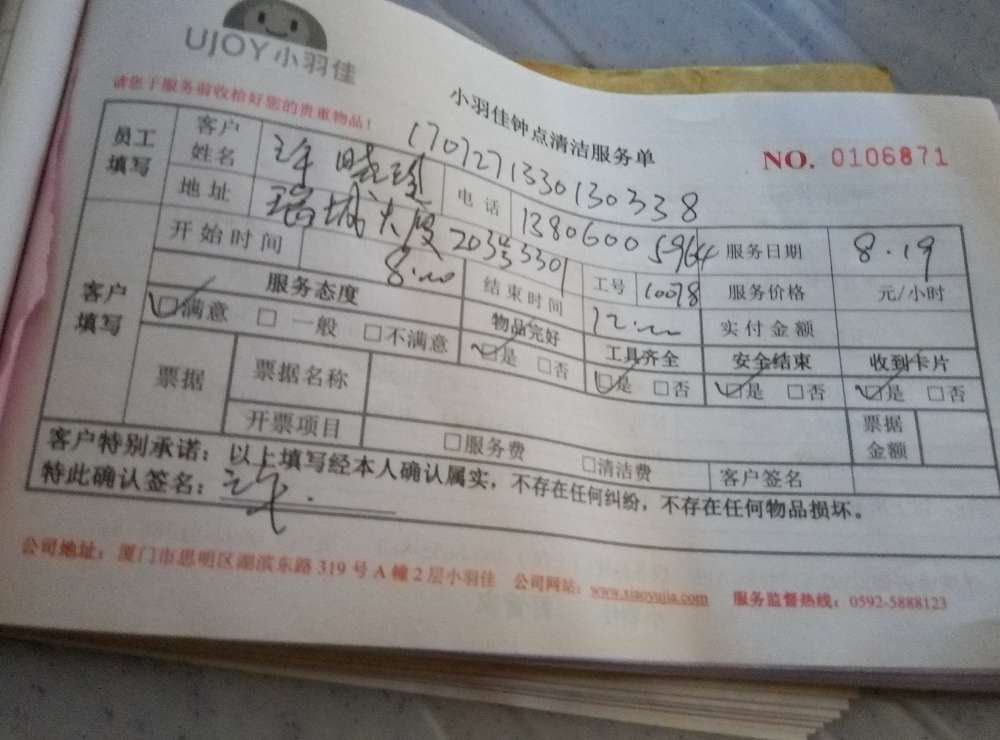 UJOY小羽佳
请您于服务前收拾好您的贵重物品!
小羽佳钟点清洁服务单
NO. 0106871
1707271330130338
员工填写 客户姓名 许晓玲 电话 13806005964 服务日期 8.19
地址 瑞城大厦 工号 10078 服务价格 元/小时
客户填写 开始时间 8:00 结束时间 12:00 实付金额
服务态度 物品完好 工具齐全 安全结束 收到卡片
满意 一般 不满意 是 否 是 否 是 否 是 否
票据 票据名称 票据金额
开票项目 服务费 清洁费 客户签名
客户特别承诺:以上填写经本人确认属实,不存在任何纠纷,不存在任何物品损坏。
特此确认签名:许.
公司地址:厦门市思明区湖滨东路319号A幢2层小羽佳 公司网站:www.xiaoyujia.com 服务监督热线:0592-5888123